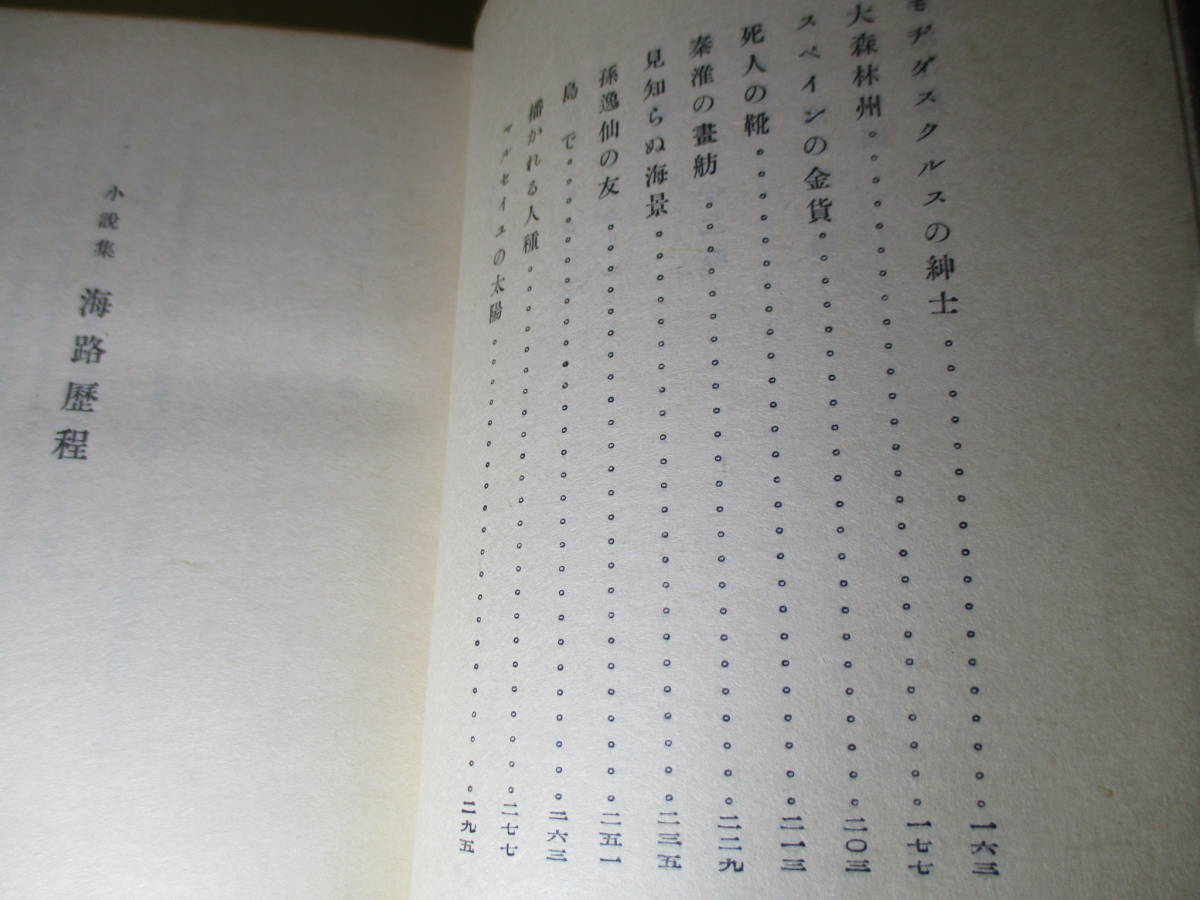 モヂダスクルスの紳士。。。。。。。。。。。。。。。。。。。一六三
大森林州。。。。。。。。。。。。。。。。。。。。。。。。。一七七
スペインの金貨。。。。。。。。。。。。。。。。。。。。。。二〇三
死人の靴。。。。。。。。。。。。。。。。。。。。。。。。。二一三
秦淮の畫舫。。。。。。。。。。。。。。。。。。。。。。。。二二九
見知らぬ海景。。。。。。。。。。。。。。。。。。。。。。。二三五
孫逸仙の友。。。。。。。。。。。。。。。。。。。。。。。。二五一
島で。。。。。。。。。。。。。。。。。。。。。。。。。。。二六三
播かれる人種。。。。。。。。。。。。。。。。。。。。。。。二七七
マルセイユの太陽。。。。。。。。。。。。。。。。。。。。。二九五
小説集 海路歷程